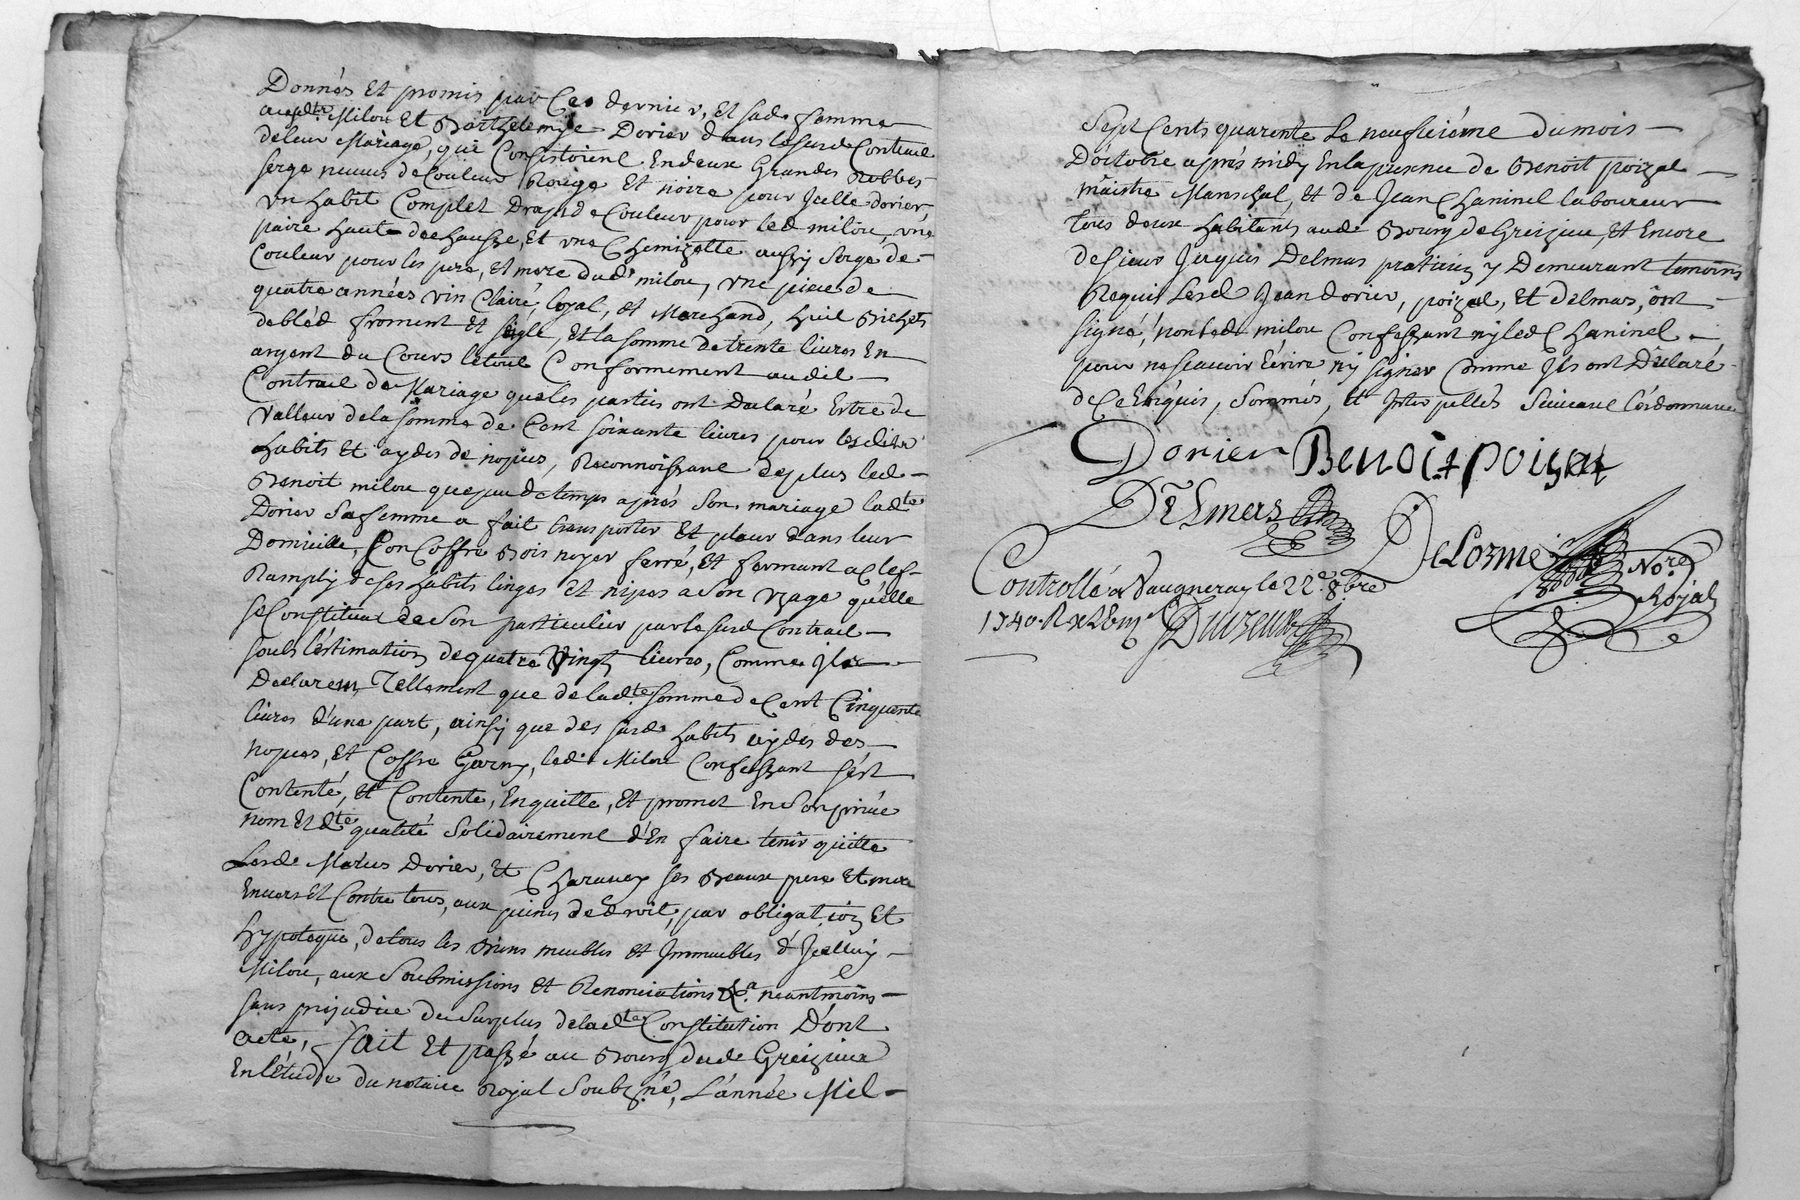 Donnés Et promis par Ces dernier, Et sade femme
audte Milou Et Barthelemye Dorier dans lesusd Contract
deleur Mariage, qui Consistoient Endeux Grandes Robbes
serge neuve de Couleur Rouge Et noire pour Jcelle dorier,
vn habit Complet Drapt de Couleur pour led milou, vne
paire hault dechausse, Et vne Chemizette aussy serge de
Couleur pour les pere, Et mere dud milou, vne piece de
quatre années vin Claire, loyal, et Marchand, huit Bichets
debled froment Et seigle, Et la somme detrente livres En
argent du Cours letout Conformement audit
Contract de Mariage queles parties ont Declaré Estre de
valleur delasomme de Cent soixante livres pour lesdits
habits Et aydes de nopces, Reconnoissant deplus led
Benoit milou quepeu detemps aprés son mariage ladte
Dorier sa femme a fait transporter Et placer dans leur
Domicille, son Coffre Bois noyer ferré, et fermant a Clef
Ramply deses habits linges Et nipes a son vzage qu'elle
seConstitua de son particulier parlesusd Contract
soubs l'estimation dequatre Vingt livres, Comme Jls
Declarent, Tellement que de ladte somme de Cent Cinquente
livres d'une part, ainsy que des susd habits aydes des
nopces, Et Coffre Garny, led Milou Confessant s'est
Contenté, Et Contente, Enquitte, Et promet En son privé
nom Et dte qualité solidairement d'En faire tenir quitte
Lesd Mariés Dorier, Et Charavay ses Beaux pere Et mere
Envers Et Contre tous, aux peines de droit, par obligation Et
hypoteque, detous les Biens meubles et Jmmeubles d'Jcelluy
Milou, aux soubmissions Et Renonciations &a neantmoins
sans prejudice du surplus deladte Constitution D'ont
acte, fait Et passé au Bourg dud Greizieu
En l'étude du notaire Royal soubzné, L'année Mil
Sept Cents quarente Le neufviéme dumois
D'octobre aprés midy Enlapresence de Benoit poizat
maistre Marechal, et de Jean Chaninel laboureur
tous deux habitants aud Bourg de Greizieu, Et Encore
desieur Jacques Delmas praticien y Demeurant temoins
Requis Lesd Jean dorier, poizat, Et delmas, ont
signé, nonled milou Confessant ny led Chaninel
pour ne scavoir Ecrire ny signer Comme Jls ont Déclaré
de Ce Enquis, sommés, Et Interpellés suivant l'ordonnance
Dorier Benoit poizat
Delmas
DeLorme Nore
Royal
Controllé a Vaugneray le 22e 8bre
1740